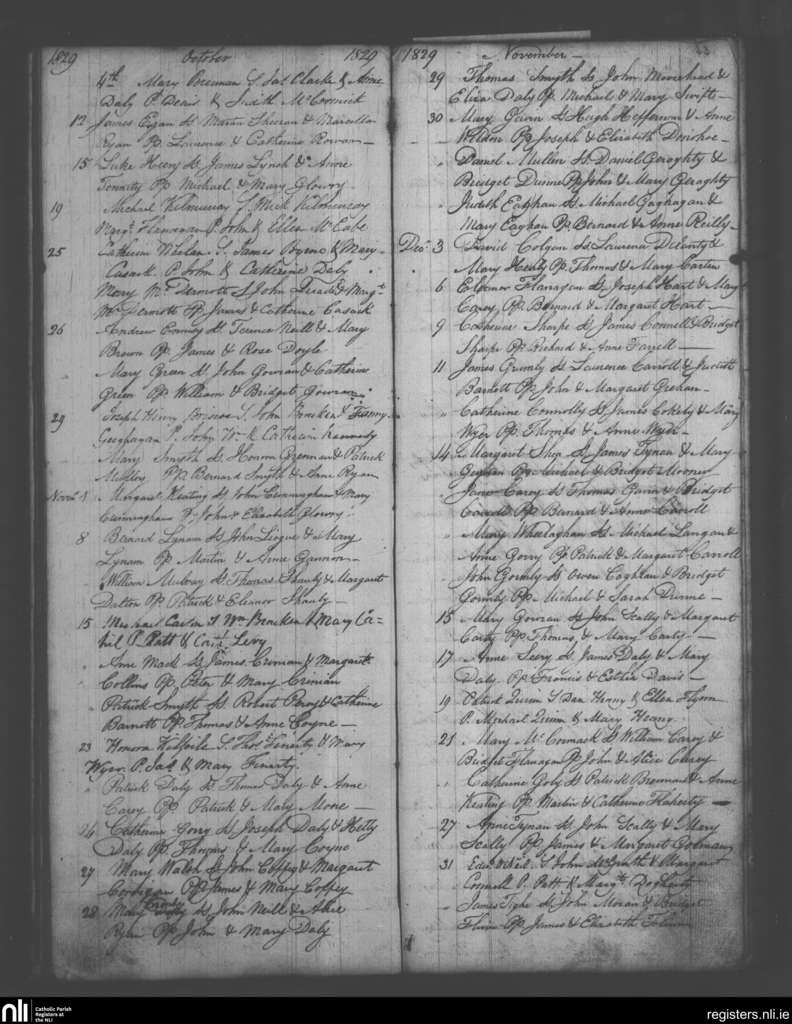 1829 October 1829
4th Mary Brennan S. Jas Clarke & Anne
Daly P. Denis & Judith McCormick
12 James Egan St Martin Sheeran & Marcella
Ryan Pp Laurence & Catherine Rowan
15 Luke Heery St James Lynch & Anne
Fennity Pp Michael & Mary Glowry
19 Michael Kilmurray S. Mick Kilmurray
Margt P. John & Ellen McCabe
25 Catherine Whelan S. James Byrne & Mary
Cusack P. John & Catherine Daly
Mary McDermott St John & Margt
McDermott Pp James & Catherine Cusack
26 Andrew St Terence Neill & Mary
Brown Pp James & Rose Doyle
Mary Green St John Gowran & Catherine
Green Pp William & Bridget Gowran
29 Joseph Henry Briscoe S. John Bracken & Fanny
Geoghagan P. John Wm & Catherin Kennedy
Mary Smyth St Honora Grennan & Patrick
Pp Bernard Smyth & Anne Ryan
Novr 1 Margaret Keating St John Cunningham & Mary
Cunningham Pp John & Elizabeth Glowry
8 Bernard Lynam St John & Mary
Lynam Pp Martin & Anne Gannon
William Mulvay St Thomas Shanly & Margaret
Dalton Pp Patrick & Eleanor Shanly
15 Michael Carter S Wm Bracken & Mary Ca=
hil P. Patt & Levy
" Anne Mack St James Crinian & Margaret
Collins Pp Peter & Mary Crinian
" Patrick Smyth St Robert & Catherine
Barnott Pp Thomas & Anne Coyne
23 Honora S. Thos Finarty & Mary
Wyer P. Jas & Mary Finarty
" Patrick Daly St Thomas Daly & Anne
Carey Pp Patrick & Mary Mone
24 Catherine Gorry St Joseph Daly & Hetty
Daly Pp Thomas & Mary Coyne
27 Mary Walsh St John Coffey & Margaret
Corrigan Pp James & Mary Coffey
28 Mary St John Neill & Alice
Ryan Pp John & Mary Daly
1829 November
29 Thomas Smyth St John Moorehead &
Eliza Daly Pp Michael & Mary Swift
30 Mary Gavin St Hugh Heffernan & Anne
Weldon Pp Joseph & Elizabeth Donohoe
" Daniel Mullin St Daniel Geraghty &
Bridget Dunne Pp John & Mary Geraghty
" Judith Eaghan St Michael Gaghagan &
Mary Eaghan Pp Bernard & Anne Reilly
Decr 3 David Colgan St Laurence Delanty &
Mary Healy Pp Thomas & Mary Carten
6 Eleanor Flanagan St Joseph Hart & Mary
Carey Pp Bernard & Margaret Hart
9 Catherine Sharpe St James Connell & Bridget
Sharpe Pp Richard & Anne Farrell
11 James Grimly St Laurence Carroll & Judith
Barnott Pp John & Margaret Grehan
" Catherine Connolly St James Cokely & Mary
Wyer Pp Thomas & Anne Wyer
14 Margaret Shep St James Tynan & Mary
Geghan Pp Michael & Bridget Mooney
" Jane Carey St Thomas Gavin & Bridget
Carroll Pp Bernard & Anne Carroll
" Mary Wheelaghan St Michael Langan &
Anne Gorry Pp Patrick & Margaret Carroll
" John Gormly St Owen Coghlan & Bridget
Gormly Pp Michael & Sarah Dunne
15 Mary Gowran St John Scally & Margaret
Carty Pp Thomas & Mary Carty
17 Anne Seery St James Daly & Mary
Daly Pp Francis & Esther Davis
19 Quinn S Dan Heany & Ellen Flynn
P. Michail Quinn & Mary Heany
21 Mary McCormack St William Carey &
Bridget Flanagan Pp John & Alice Carey
" Catherine Goly St Patrick Brennan & Anne
Keating Pp Martin & Catherine Flaherty
27 Anne Tynan St John Scally & Mary
Scally Pp James & Margaret Gorman
31 Edwd S John McGrath & Margaret
Connell P. Patt & Margt Dogherty
" James Tighe St John Moran & Bridget
Flinn Pp James & Elizabeth Flinn
nli Catholic Parish
Registers at
the NLI
registers.nli.ie